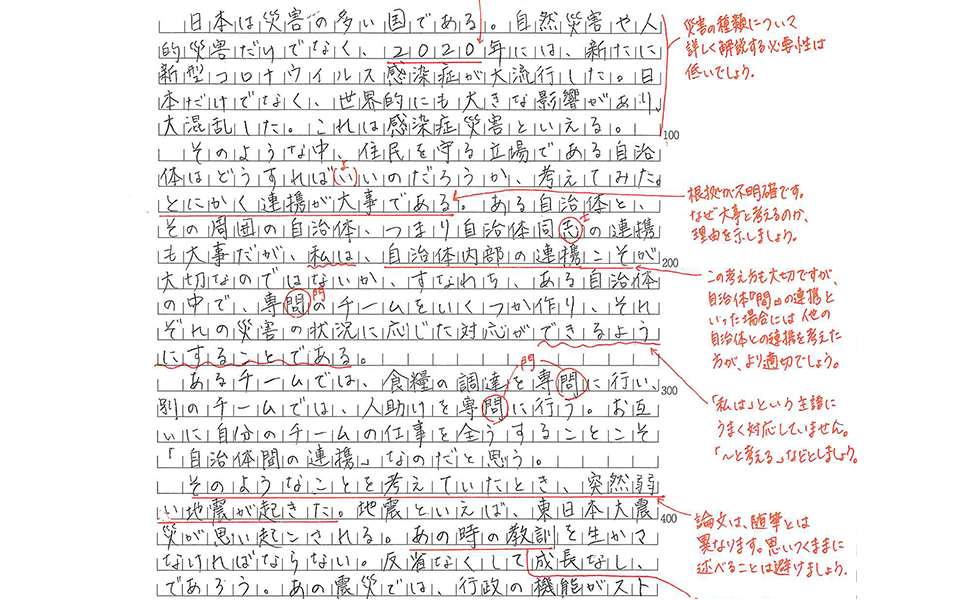 日本は災害の多い国である。自然災害や人
的災害だけでなく、2020年には、新たに
新型コロナウイルス感染症が大流行した。日
本だけでなく、世界的にも大きな影響があり、
大混乱した。これは感染症災害といえる。
100
そのような中、住民を守る立場である自治
体はどうすればいいのだろうか、考えてみた。
よ
とにかく連携が大事である。ある自治体と、
その周囲の自治体、つまり自治体同志の連携
士
も大事だが、私は、自治体内部の連携こそが
200
大切なのではないか、すなわち、ある自治体
の中で、専問のチームをいくつか作り、それ
門
ぞれの災害の状況に応じた対応ができるよう
にすることである。
あるチームでは、食糧の調達を専問に行い、
門
300
別のチームでは、人助けを専問に行う。お互
いに自分のチームの仕事を全うすることこそ
「自治体間の連携」なのだと思う。
そのようなことを考えていたとき、突然弱
い地震が起きた。地震といえば、東日本大震
400
災が思い起こされる。あの時の教訓を生かさ
なければならない。反省なくして成長なし、
であろう。あの震災では、行政の機能がスト
災害の種類について
詳しく解説する必要性は
低いでしょう。
根拠が不明確です。
なぜ大事と考えるのか、
理由を示しましょう。
この考え方も大切ですが、
自治体『間』の連携と
いった場合には他の
自治体との連携を考えた
方が、より適切でしょう。
「私は」という主語に
うまく対応していません。
「〜と考える」などとしましょう。
論文は、随筆とは
異なります。思いつくままに
述べることは避けましょう。